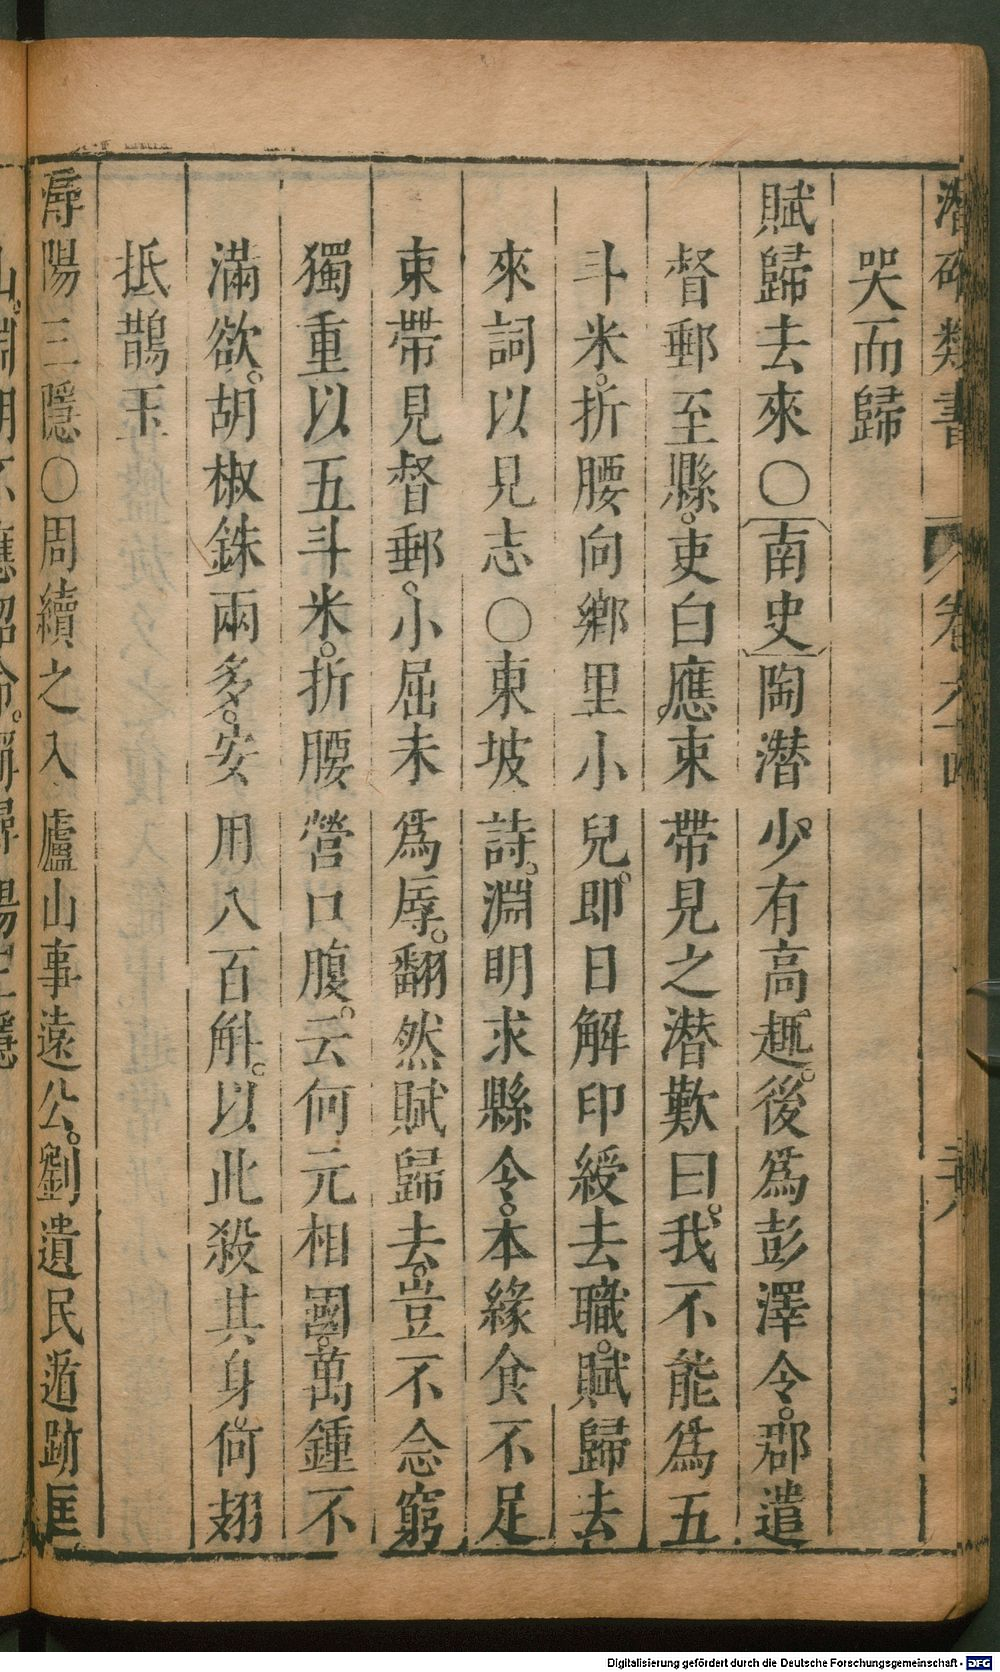 潛確類書 卷六十四 二十八
哭而歸
賦歸去來〇南史陶潛少有高趣。後爲彭澤令。郡遣
督郵至縣。吏白。應束帶見之潛歎曰。我不能爲五
斗米。折腰向鄉里小兒。即日解印綬去職。賦歸去
來詞以見志〇東坡詩。淵明求縣令。本緣食不足
束帶見督郵。小屈未爲辱。翻然賦歸去。豈不念窮
獨重以五斗米。折腰營口腹。云何元相國。萬鍾不
滿欲。胡椒銖兩多。安用八百斛。以此殺其身。何翅
抵鵲玉
尋陽三隱〇周續之入廬山事遠公。劉遺民遁跡匡
山。淵明不應詔命。謂尋陽三隱
Digitalisierung gefördert durch die Deutsche Forschungsgemeinschaft - DFG